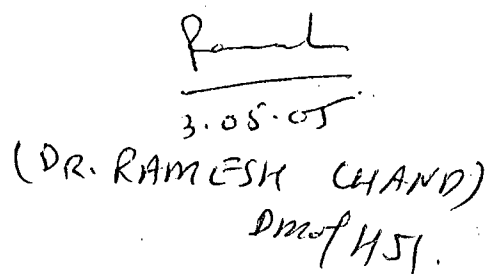 Ramesh
3.05.05
(DR. RAMESH CHAND)
DMO/HSJ.